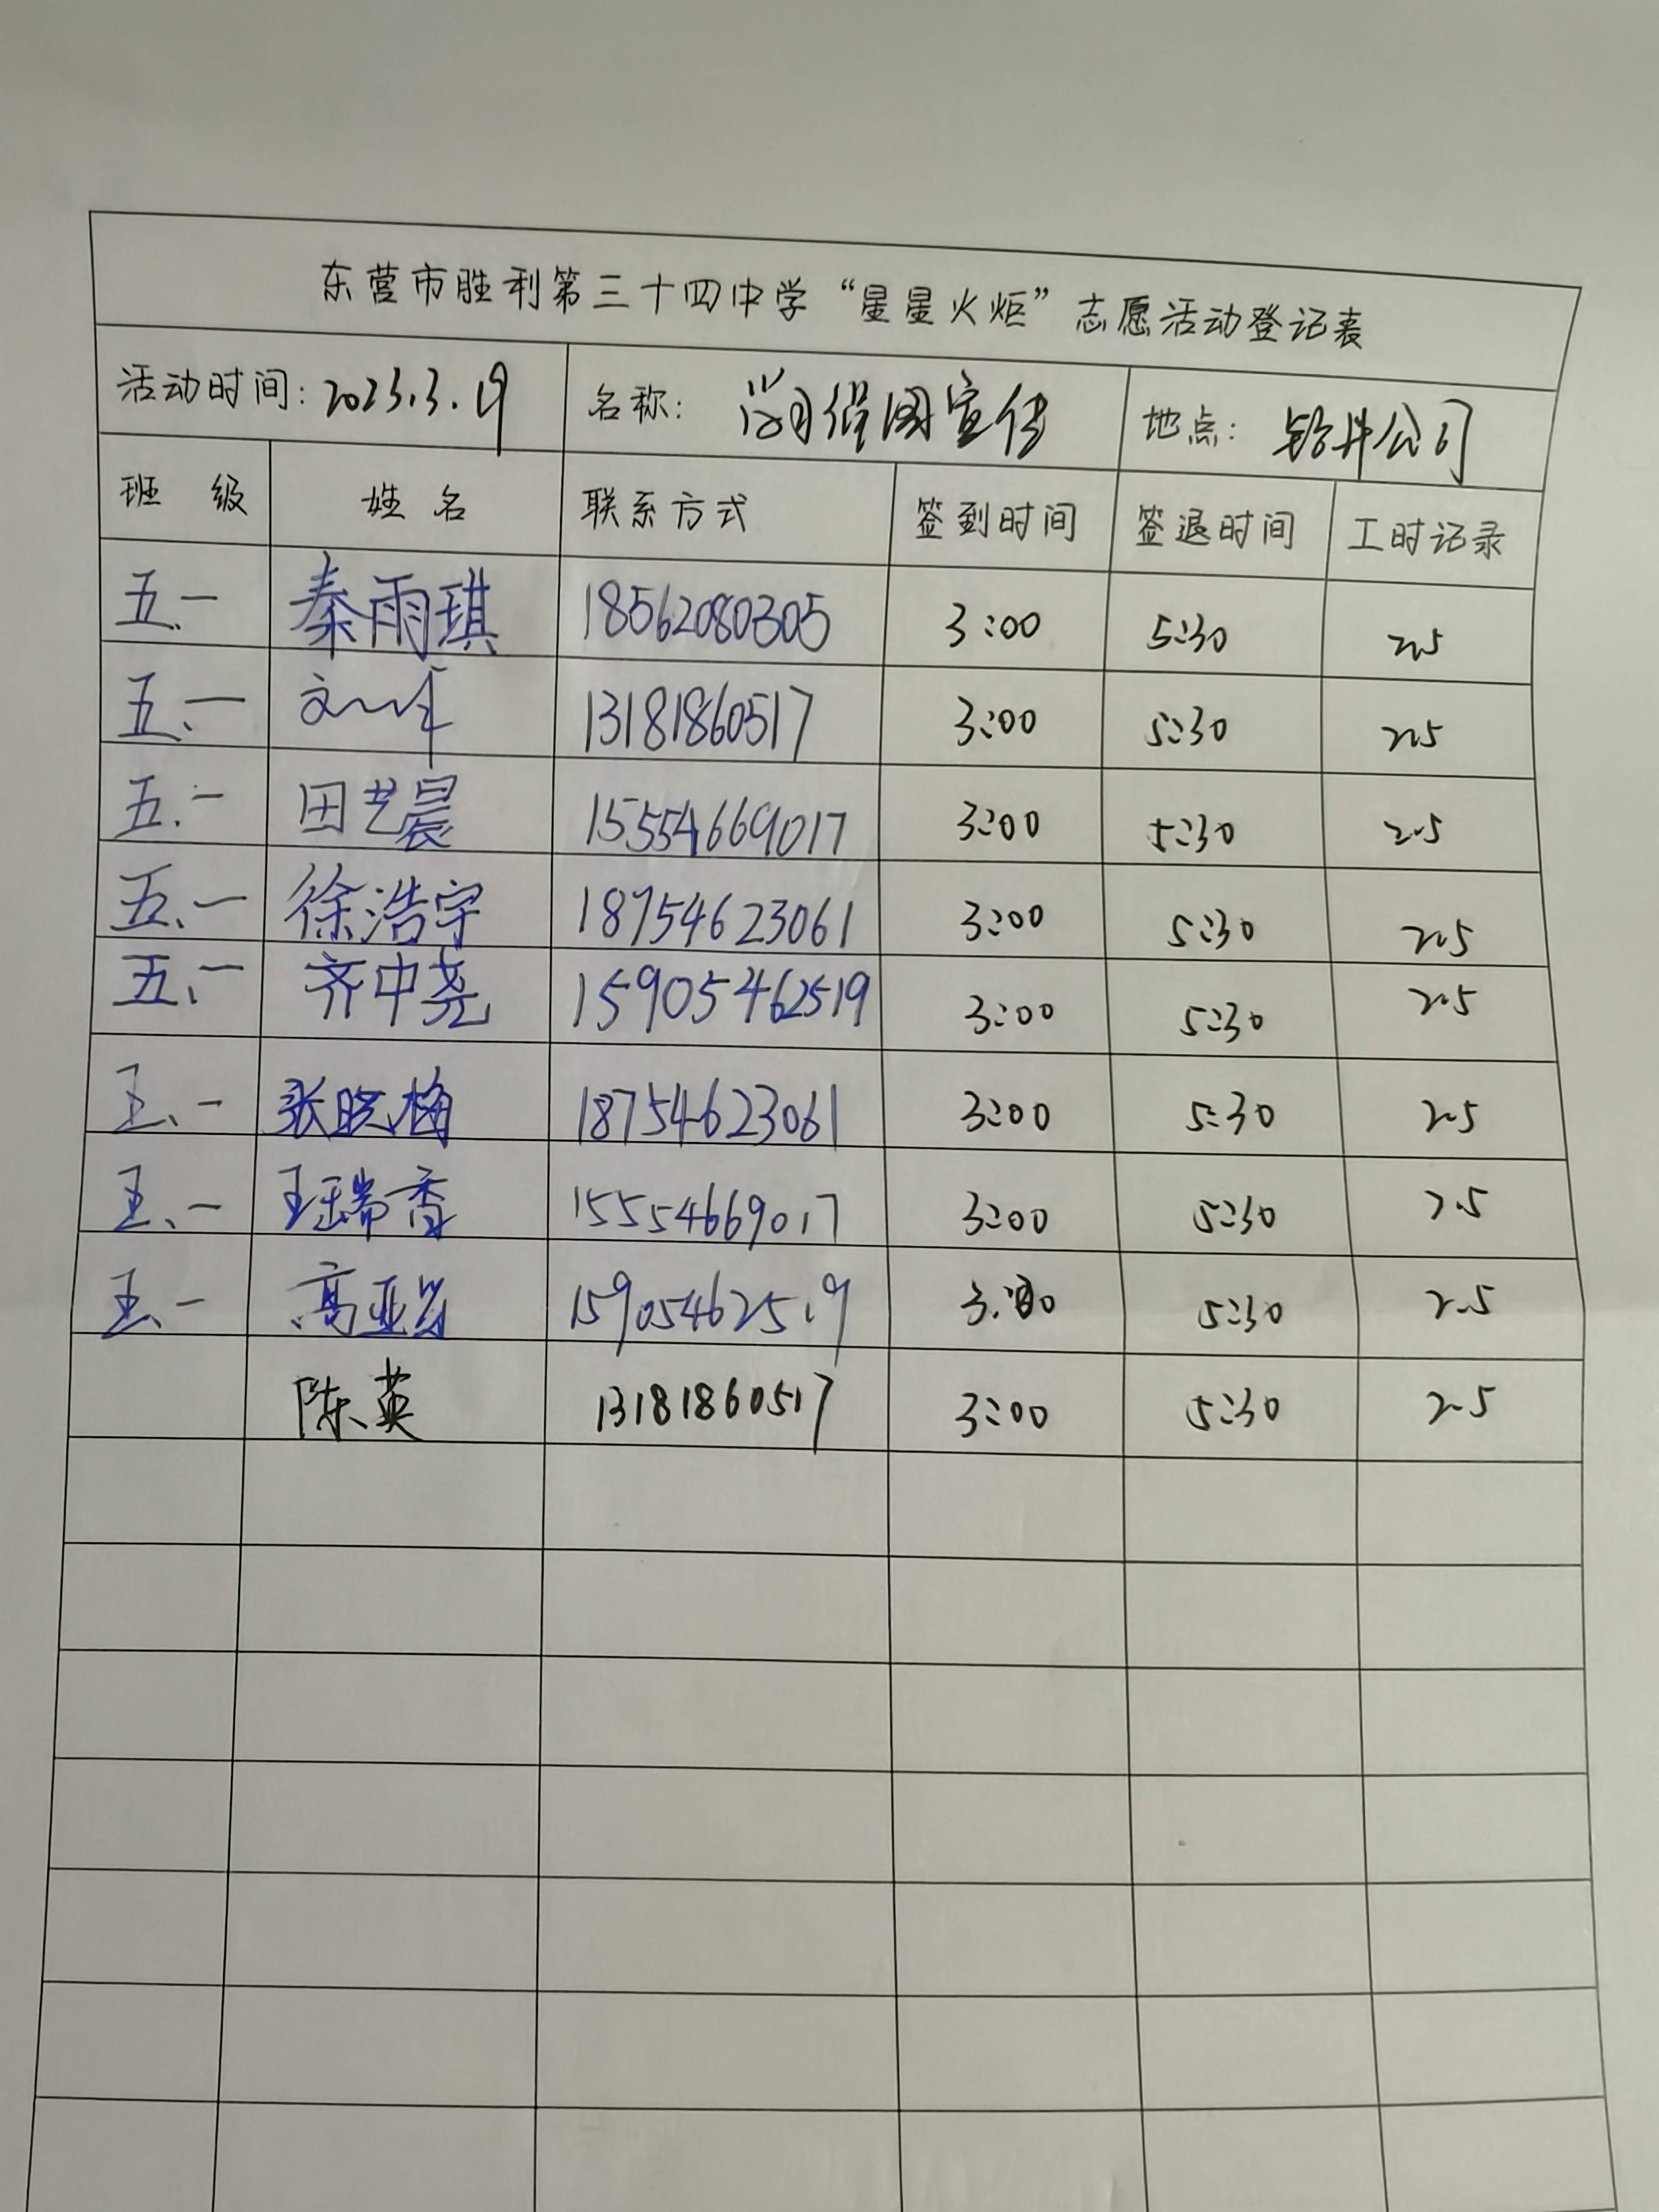 东营市胜利第三十四中学“星星火炬”志愿活动登记表
活动时间: 2023.3.19 名称: 学习强国宣传 地点: 钻井公司
班级 姓名 联系方式 签到时间 签退时间 工时记录
五.一 秦雨琪 18562080305 3:00 5:30 2.5
五.一 13181860517 3:00 5:30 2.5
五.一 田艺晨 15554669017 3:00 5:30 2.5
五.一 徐浩宇 18754623061 3:00 5:30 2.5
五.一 齐中尧 15905462519 3:00 5:30 2.5
五.一 张晓梅 18754623061 3:00 5:30 2.5
五.一 王瑞香 15554669017 3:00 5:30 2.5
五.一 高亚 15905462519 3:00 5:30 2.5
陈英 13181860517 3:00 5:30 2.5